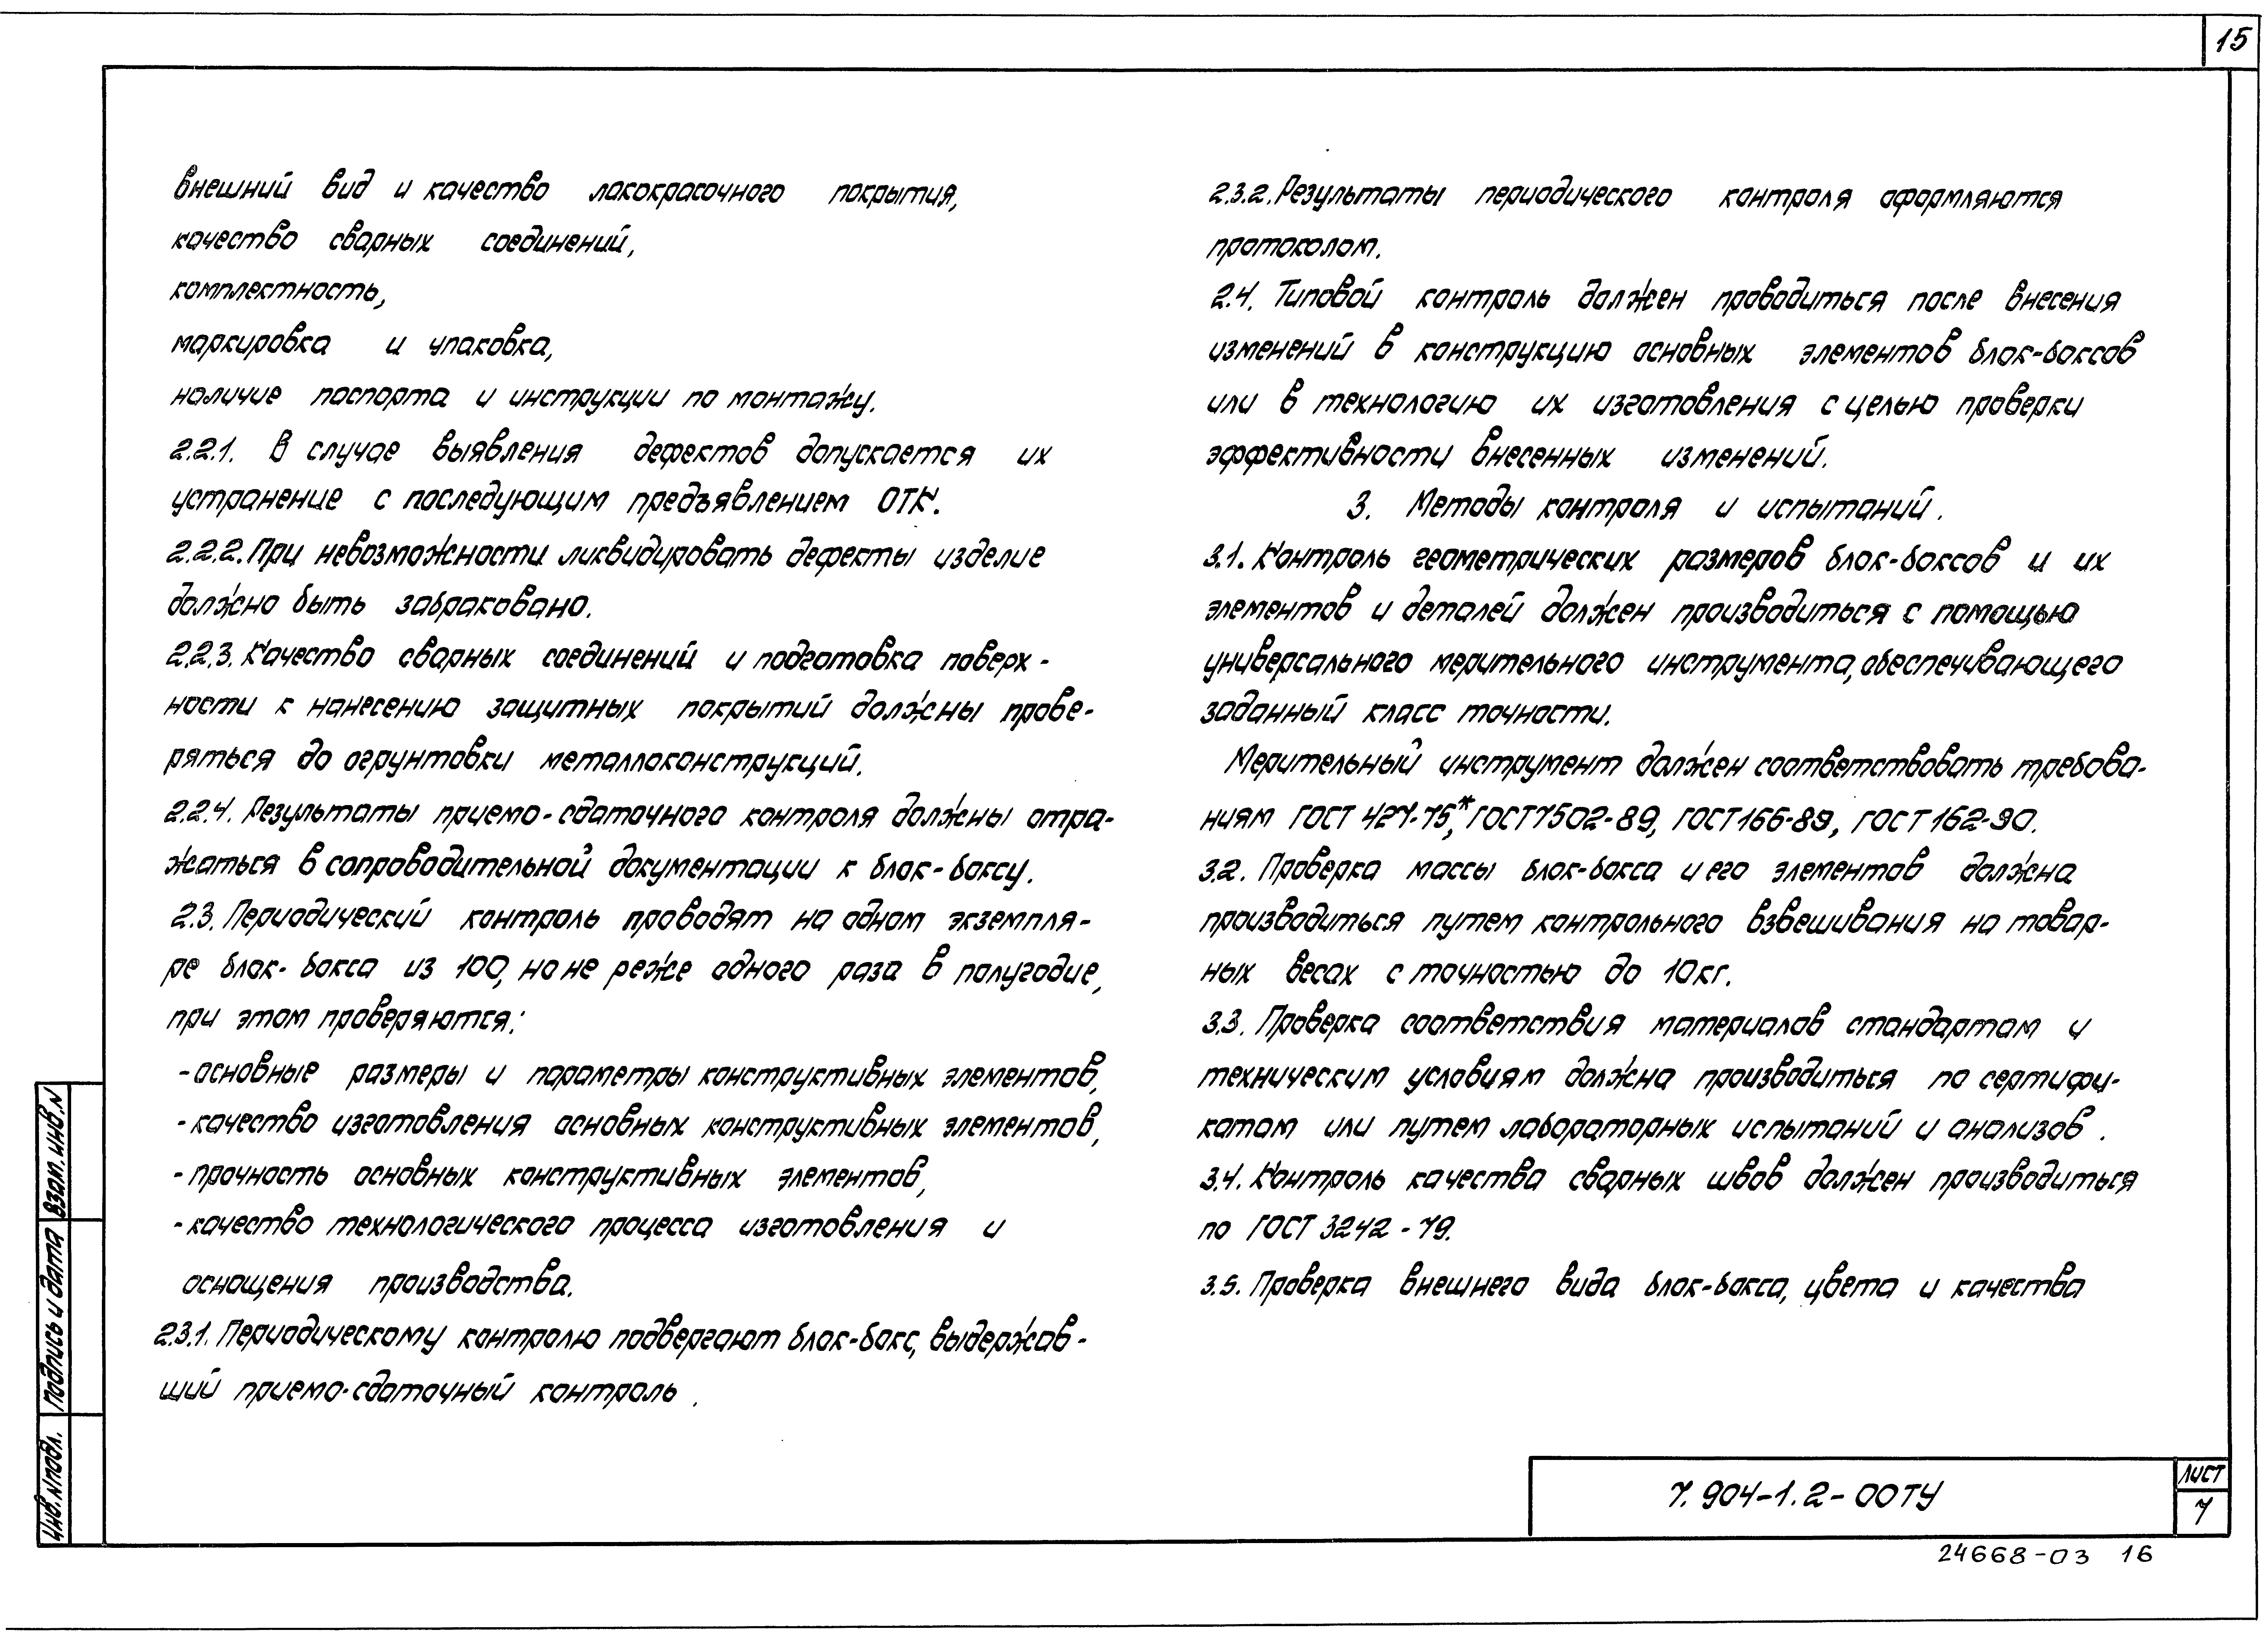 15
внешний вид и качество лакокрасочного покрытия,
качество сварных соединений,
комплектность,
маркировка и упаковка,
наличие паспорта и инструкции по монтажу.
2.2.1. В случае выявления дефектов допускается их
устранение с последующим предъявлением ОТК.
2.2.2. При невозможности ликвидировать дефекты изделие
должно быть забраковано.
2.2.3. Качество сварных соединений и подготовка поверх-
ности к нанесению защитных покрытий должны прове-
ряться до огрунтовки металлоконструкций.
2.2.4. Результаты приемо-сдаточного контроля должны отра-
жаться в сопроводительной документации к блок-боксу.
2.3. Периодический контроль проводят на одном экземпля-
ре блок-бокса из 100, но не реже одного раза в полугодие,
при этом проверяются:
-основные размеры и параметры конструктивных элементов,
-качество изготовления основных конструктивных элементов,
-прочность основных конструктивных элементов,
-качество технологического процесса изготовления и
оснащения производства.
2.3.1. Периодическому контролю подвергают блок-бокс, выдержав-
ший приемо-сдаточный контроль.
2.3.2. Результаты периодического контроля оформляются
протоколом.
2.4. Типовой контроль должен проводиться после внесения
изменений в конструкцию основных элементов блок-боксов
или в технологию их изготовления с целью проверки
эффективности внесенных изменений.
3. Методы контроля и испытаний.
3.1. Контроль геометрических размеров блок-боксов и их
элементов и деталей должен производиться с помощью
универсального мерительного инструмента, обеспечивающего
заданный класс точности.
Мерительный инструмент должен соответствовать требова-
ниям ГОСТ 427-75*, ГОСТ 7502-89, ГОСТ 166-89, ГОСТ 162-90.
3.2. Проверка массы блок-бокса и его элементов должна
производиться путем контрольного взвешивания на товар-
ных весах с точностью до 10кг.
3.3. Проверка соответствия материалов стандартам и
техническим условиям должна производиться по сертифи-
катам или путем лабораторных испытаний и анализов.
3.4. Контроль качества сварных швов должен производиться
по ГОСТ 3242-79.
3.5. Проверка внешнего вида блок-бокса, цвета и качества
Инв.№подл. Подпись и дата Взам.инв.№
7.904-1.2-00ТУ
Лист
7
24668-03 16